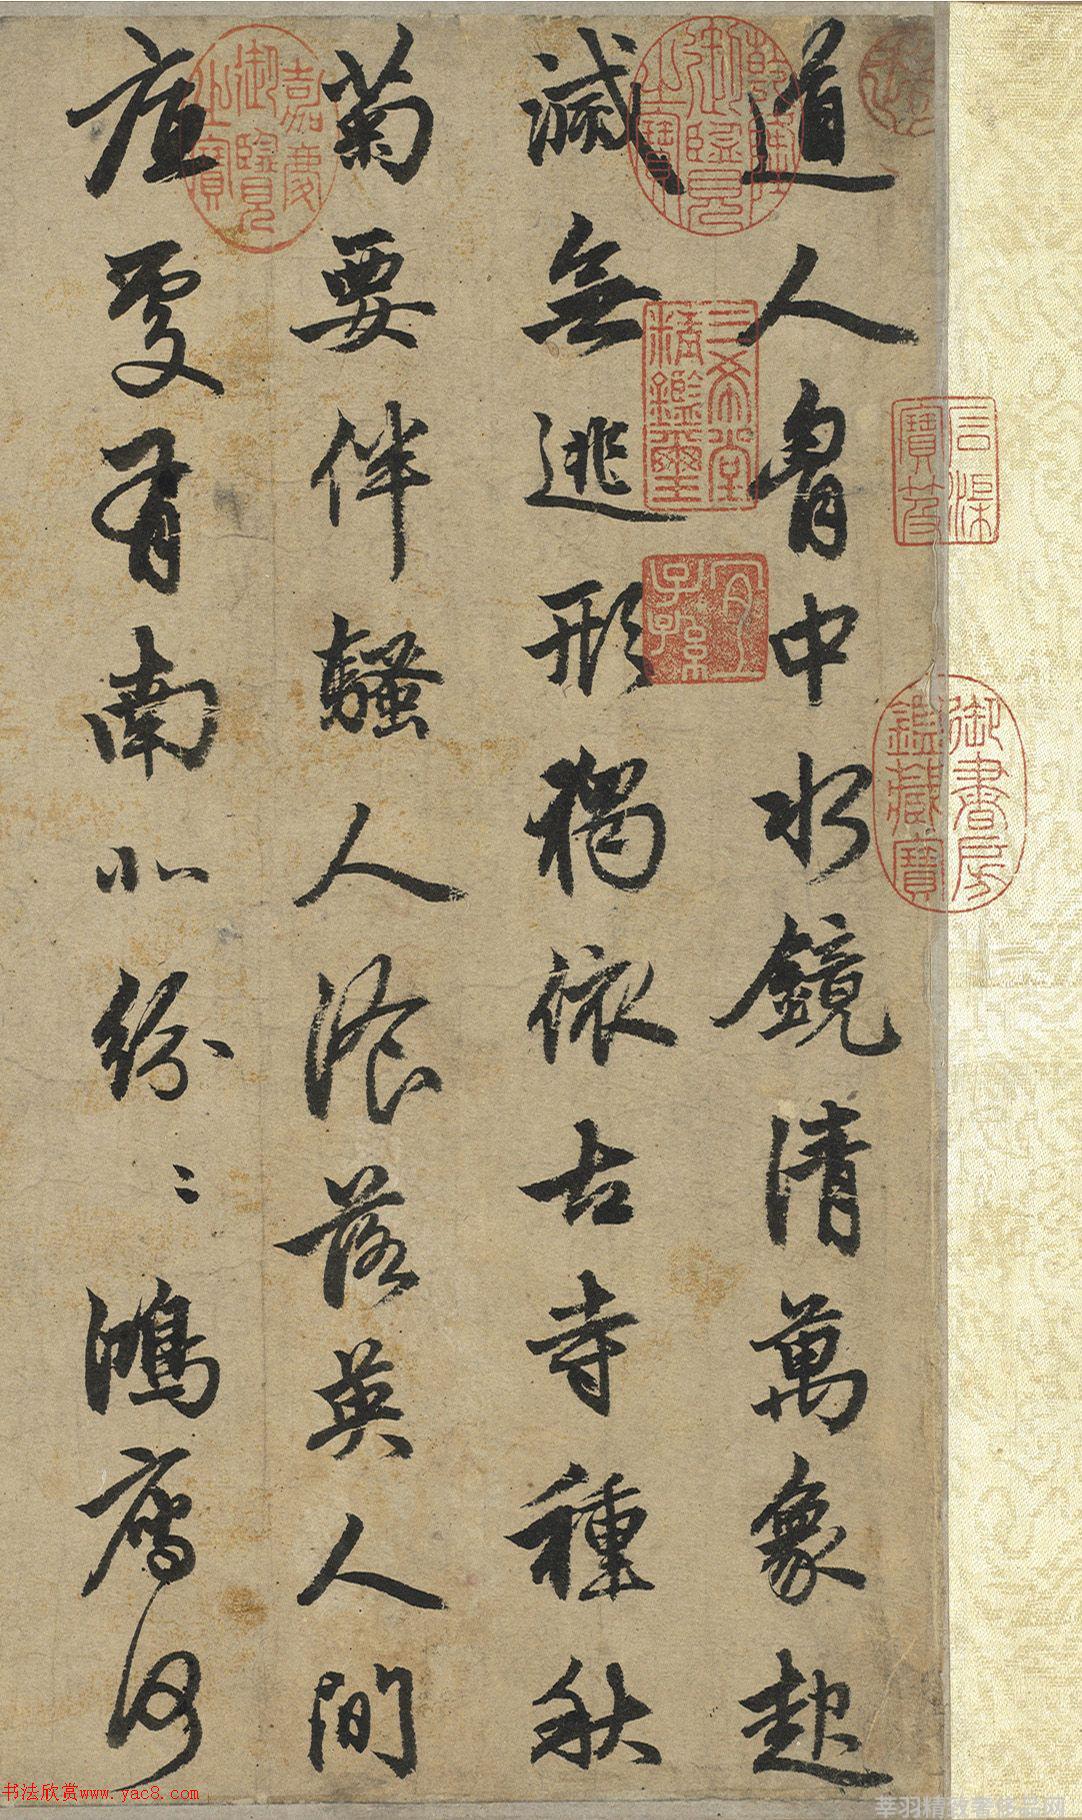 道人胷中水鏡清萬象起
滅無逃形獨依古寺種秋
菊要伴騷人湌落英人間
底處有南北紛〻鴻鴈何
乾隆御覽之寶
三希堂精鑑璽
宜子孫
石渠寶笈
御書房鑑藏寶
嘉慶御覽之寶
书法欣赏www.yac8.com